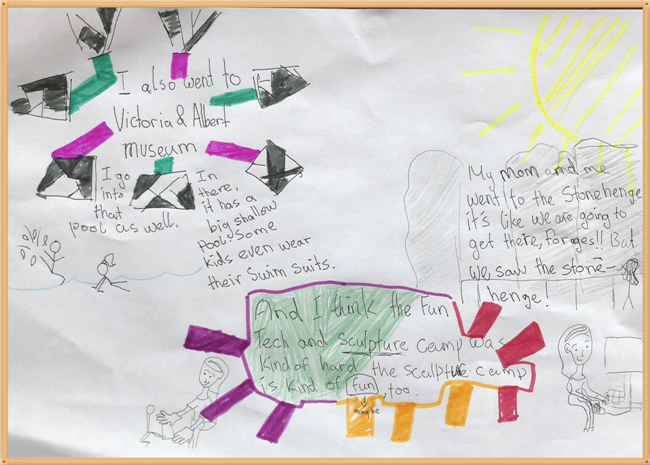 I also went to
Victoria & Albert
museum
I go
into
that
pool as well.
In
there,
it has a
big shallow
pool. Some
kids even wear
their swim suits.
My mom and me
went to the Stonehenge
it's like we are going to
get there, Forages!! But
we saw the stone-
henge!
And I think the Fun
Tech and sculpture camp was
kind of hard the sculpture camp
is kind of fun, too.
maybe